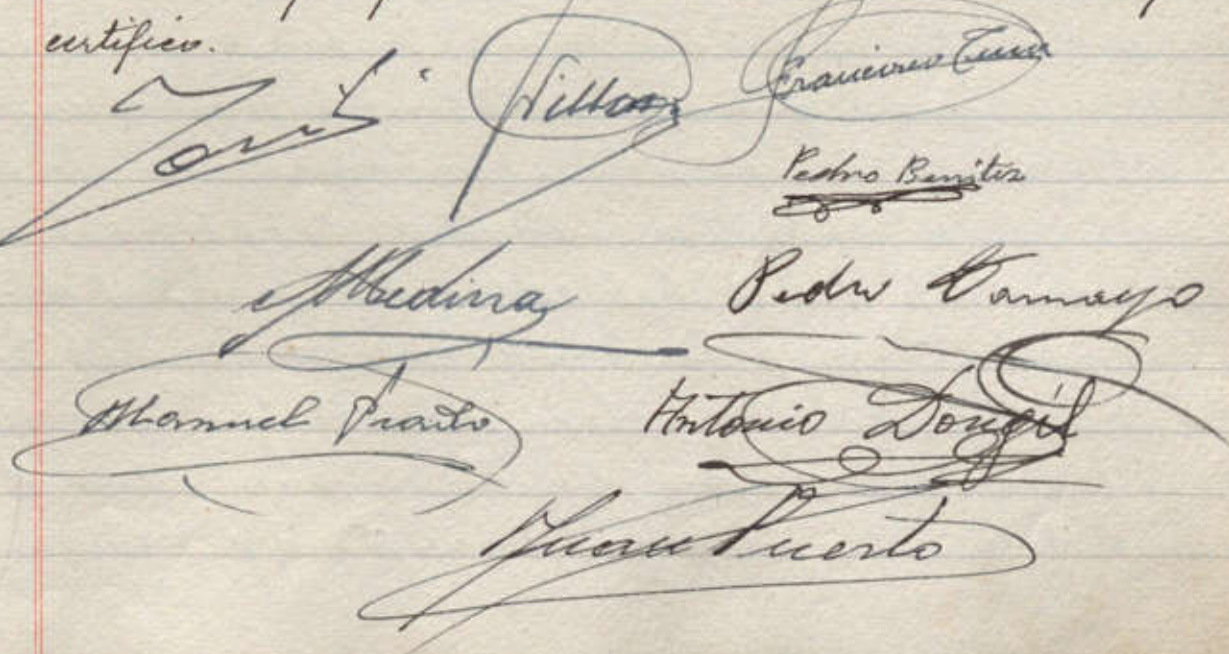 certifico.
Francisco
Pedro Benitez
Medina
Pedro Tamayo
Manuel Prado
Antonio Dongil
Juan Puerto